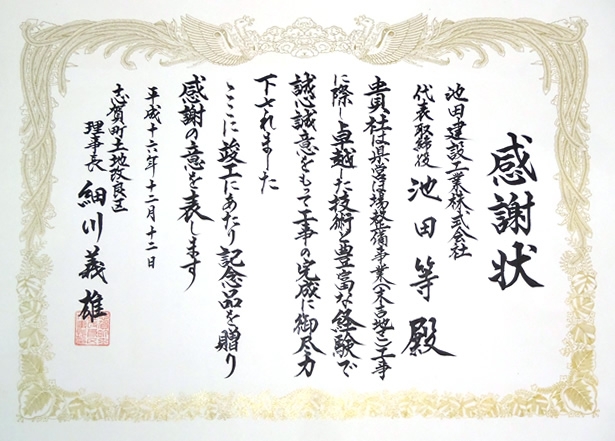 感謝状
池田建設工業株式会社
代表取締役 池田等殿
貴社は県営ほ場整備事業(末吉地区)工事
に際し卓越した技術と豊富な経験で
誠心誠意をもって工事の完成に御尽力
下されました
ここに竣工にあたり記念品を贈り
感謝の意を表します
平成十六年十二月十二日
志賀町土地改良区
理事長 細川義雄